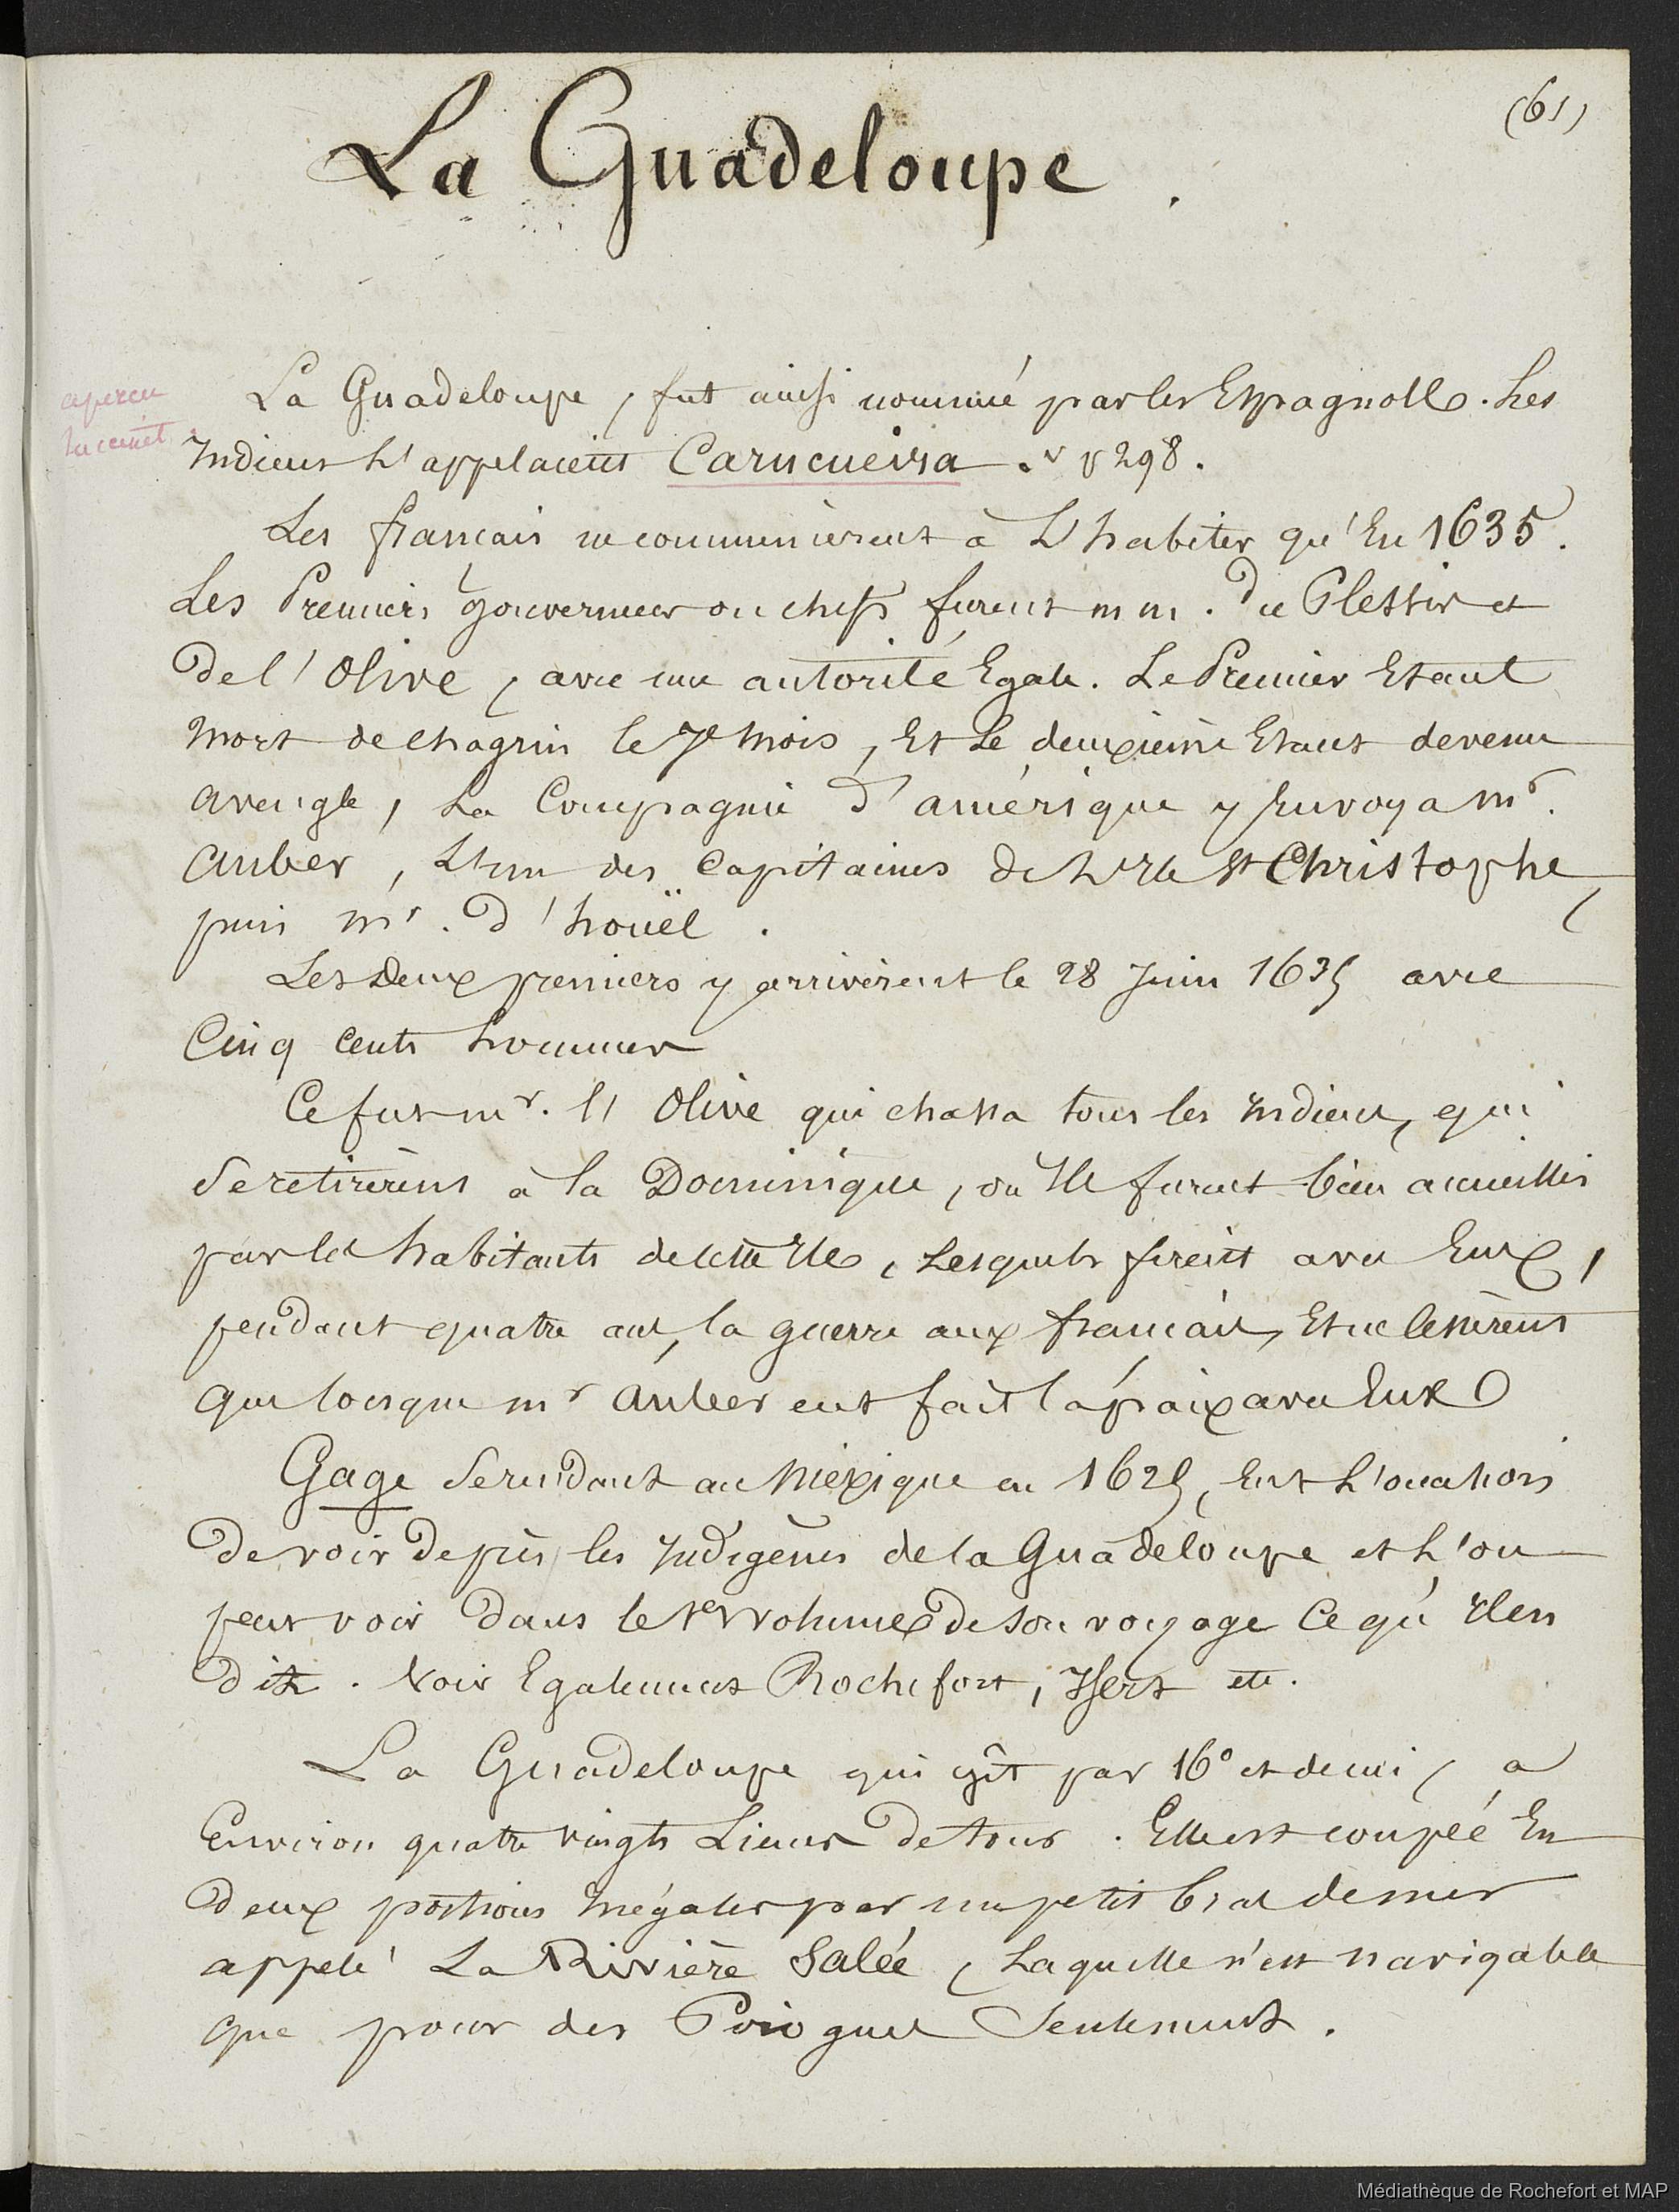 (61)
La Guadeloupe.
aperçu
succinct.
La Guadeloupe, fut ainsi nommé par les Espagnolls. Les
Indiens L'appelaient Carucueira. v p 298.
Les français ne commencèrent à L'habiter qu'En 1635.
Les Premiers gouverneurs ou chefs furent m m. du Plessis et
De l'Olive, avec une autorité Egale. Le Premier Etant
mort de chagrin le 7e mois, Et Le deuxième Etant devenu
aveugle, La Compagnie d'amérique y Envoya mr.
Auber, L'un des Capitaines de L'Ile St Christophe,
puis mr. d'houël.
Les deux premiers y arrivèrent le 28 Juin 1635 avec
Cinq cents hommes
Ce fut mr. l'Olive qui chassa tous les Indiens, qui
Se retirèrent à la Dominique, où Ils furent bien accueillis
par les habitants de cette Ile, Lesquels firent avec Eux,
pendant quatre ans, la guerre aux français, Et ne cessèrent
que lorsque mr Auber eut fait la paix avec Eux
Gage Se rendant au Méxique en 1625, Eut L'occasion
De voir De près les Indigènes de la Guadeloupe et L'on
peut voir Dans le volume de son voyage Ce qu'Il en
dit. Voir Egalement Rochefort, Isert etc.
La Guadeloupe qui gît par 16° et demi, a
Environ quatre vingts Lieues De tour. Elle est coupée En
Deux portions Inégales par un petit bras de mer
appelé La Rivière Salée, Laquelle n'est navigable
que pour des Pirogues Seulement.
Médiathèque de Rochefort et MAP